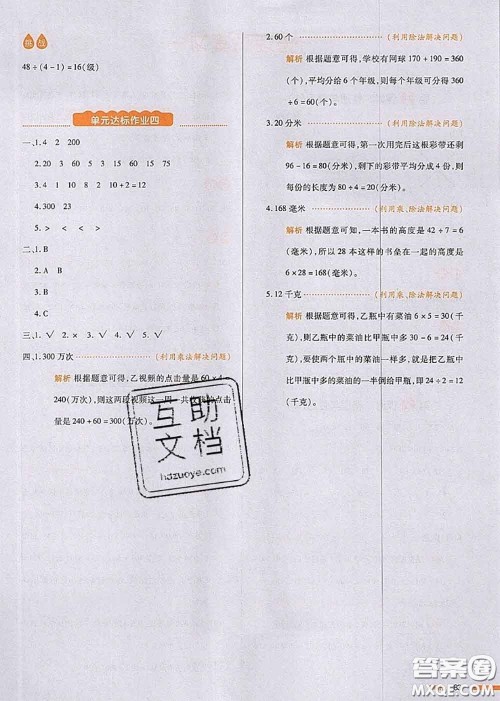 48÷(4-1)=16(级)
单元达标作业四
一、1.4 2 200
2.20 3 60 75 15 15
3.4 1 8 2 10÷2=12
4.300 23
5.> < < >
二、1.B
2.A B
3.B
4.C
三、1.√ 2.× 3.√ 4.√
四、1.300 万次 (利用乘法解决问题)
解析 根据题意可得,乙视频的点击量是 60×4=
240(万次),则这两段视频这一周一共 的点击
量是 240+60=300(万次)。
2.60 个 (利用除法解决问题)
解析 根据题意可得,学校有网球 170+190=360
(个),平均分给 6 个年级,则每个年级可分得 360
÷6=60(个)。
3.20 分米 (利用除法解决问题)
解析 根据题意可得,第一次用完后这根彩带还剩
96-16=80(分米),剩下的彩带平均分成 4 份,则
每份的长度为 80÷4=20(分米)。
4.168 毫米 (利用乘、除法解决问题)
解析 根据题意可知,一本书的高度是 42÷7=6
(毫米),所以 28 本这样的书垒在一起的高度是
6×28=168(毫米)。
5.12 千克 (利用乘、除法解决问题)
解析 根据题意可得,乙瓶中有菜油 6×5=30(千
克),则乙瓶中的菜油比甲瓶中的菜油多 30-6=24(千
克),要使两个瓶中的菜油一样多,就是把乙瓶中
比甲瓶中多的菜油的一半倒给甲瓶,即 24÷2=12
(千克)。
互助
文档
hdzuoye.com
答案圈
MXQE.COM